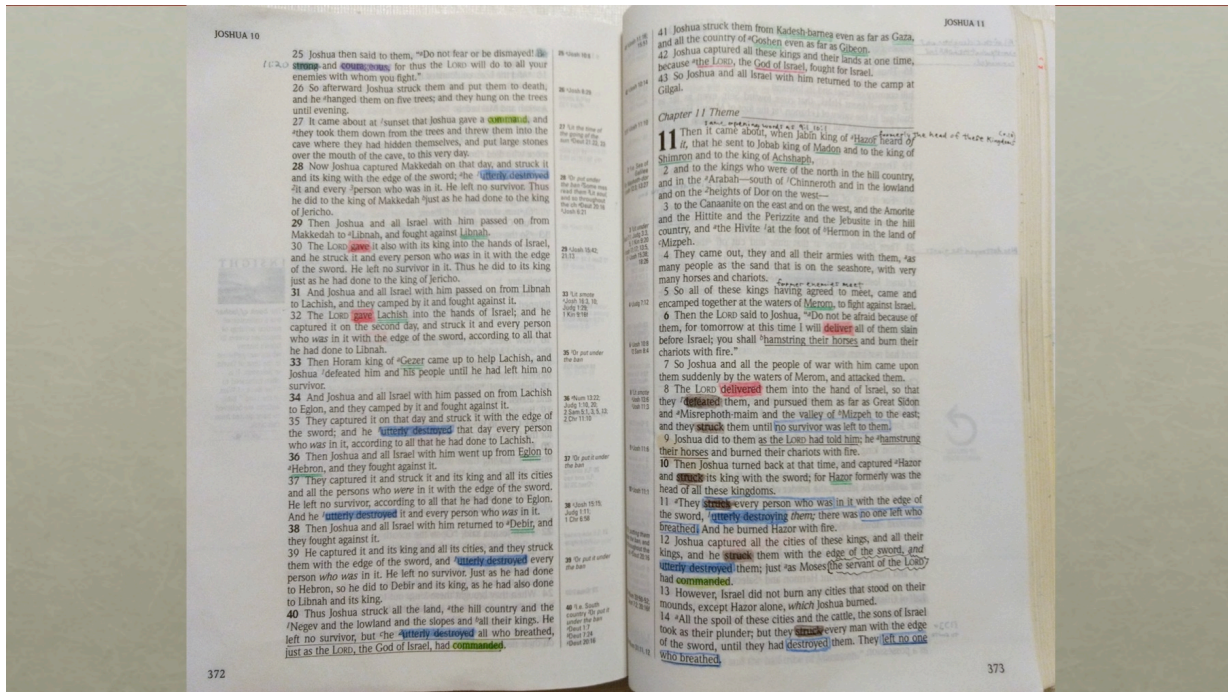 JOSHUA 10
25 Joshua then said to them, "Do not fear or be dismayed! Be
strong and courageous, for thus the LORD will do to all your
enemies with whom you fight."
26 So afterward Joshua struck them and put them to death,
and he hanged them on five trees; and they hung on the trees
until evening.
27 It came about at sunset that Joshua gave a command, and
they took them down from the trees and threw them into the
cave where they had hidden themselves, and put large stones
over the mouth of the cave, to this very day.
28 Now Joshua captured Makkedah on that day, and struck it
and its king with the edge of the sword; he utterly destroyed
it and every person who was in it. He left no survivor. Thus
he did to the king of Makkedah just as he had done to the king
of Jericho.
29 Then Joshua and all Israel with him passed on from
Makkedah to Libnah, and fought against Libnah.
30 The LORD gave it also with its king into the hands of Israel,
and he struck it and every person who was in it with the edge
of the sword. He left no survivor in it. Thus he did to its king
just as he had done to the king of Jericho.
31 And Joshua and all Israel with him passed on from Libnah
to Lachish, and they camped by it and fought against it.
32 The LORD gave Lachish into the hands of Israel; and he
captured it on the second day, and struck it and every person
who was in it with the edge of the sword, according to all that
he had done to Libnah.
33 Then Horam king of Gezer came up to help Lachish, and
Joshua defeated him and his people until he had left him no
survivor.
34 And Joshua and all Israel with him passed on from Lachish
to Eglon, and they camped by it and fought against it.
35 They captured it on that day and struck it with the edge of
the sword; and he utterly destroyed that day every person
who was in it, according to all that he had done to Lachish.
36 Then Joshua and all Israel with him went up from Eglon to
Hebron, and they fought against it.
37 They captured it and struck it and its king and all its cities
and all the persons who were in it with the edge of the sword.
He left no survivor, according to all that he had done to Eglon.
And he utterly destroyed it and every person who was in it.
38 Then Joshua and all Israel with him returned to Debir, and
they fought against it.
39 He captured it and its king and all its cities, and they struck
them with the edge of the sword, and utterly destroyed every
person who was in it. He left no survivor. Just as he had done
to Hebron, so he did to Debir and its king, as he had also done
to Libnah and its king.
40 Thus Joshua struck all the land, the hill country and the
Negev and the lowland and the slopes and all their kings. He
left no survivor, but he utterly destroyed all who breathed,
just as the LORD, the God of Israel, had commanded.
372
JOSHUA 11
41 Joshua struck them from Kadesh-barnea even as far as Gaza,
and all the country of Goshen even as far as Gibeon.
42 Joshua captured all these kings and their lands at one time,
because the LORD, the God of Israel, fought for Israel.
43 So Joshua and all Israel with him returned to the camp at
Gilgal.
Chapter 11 Theme
11 Then it came about, when Jabin king of Hazor heard of
it, that he sent to Jobab king of Madon and to the king of
Shimron and to the king of Achshaph,
2 and to the kings who were of the north in the hill country,
and in the Arabah—south of Chinneroth and in the lowland
and on the heights of Dor on the west—
3 to the Canaanite on the east and on the west, and the Amorite
and the Hittite and the Perizzite and the Jebusite in the hill
country, and the Hivite at the foot of Hermon in the land of
Mizpeh.
4 They came out, they and all their armies with them, as
many people as the sand that is on the seashore, with very
many horses and chariots.
former enemies meet
5 So all of these kings having agreed to meet, came and
encamped together at the waters of Merom, to fight against Israel.
6 Then the LORD said to Joshua, "Do not be afraid because of
them, for tomorrow at this time I will deliver all of them slain
before Israel; you shall hamstring their horses and burn their
chariots with fire."
7 So Joshua and all the people of war with him came upon
them suddenly by the waters of Merom, and attacked them.
8 The LORD delivered them into the hand of Israel, so that
they defeated them, and pursued them as far as Great Sidon
and Misrephoth-maim and the valley of Mizpeh to the east;
and they struck them until no survivor was left to them.
9 Joshua did to them as the LORD had told him; he hamstrung
their horses and burned their chariots with fire.
10 Then Joshua turned back at that time, and captured Hazor
and struck its king with the sword; for Hazor formerly was the
head of all these kingdoms.
11 They struck every person who was in it with the edge of
the sword, utterly destroying them; there was no one left who
breathed. And he burned Hazor with fire.
12 Joshua captured all the cities of these kings, and all their
kings, and he struck them with the edge of the sword, and
utterly destroyed them; just as Moses the servant of the LORD
had commanded.
13 However, Israel did not burn any cities that stood on their
mounds, except Hazor alone, which Joshua burned.
14 All the spoil of these cities and the cattle, the sons of Israel
took as their plunder; but they struck every man with the edge
of the sword, until they had destroyed them. They left no one
who breathed.
373